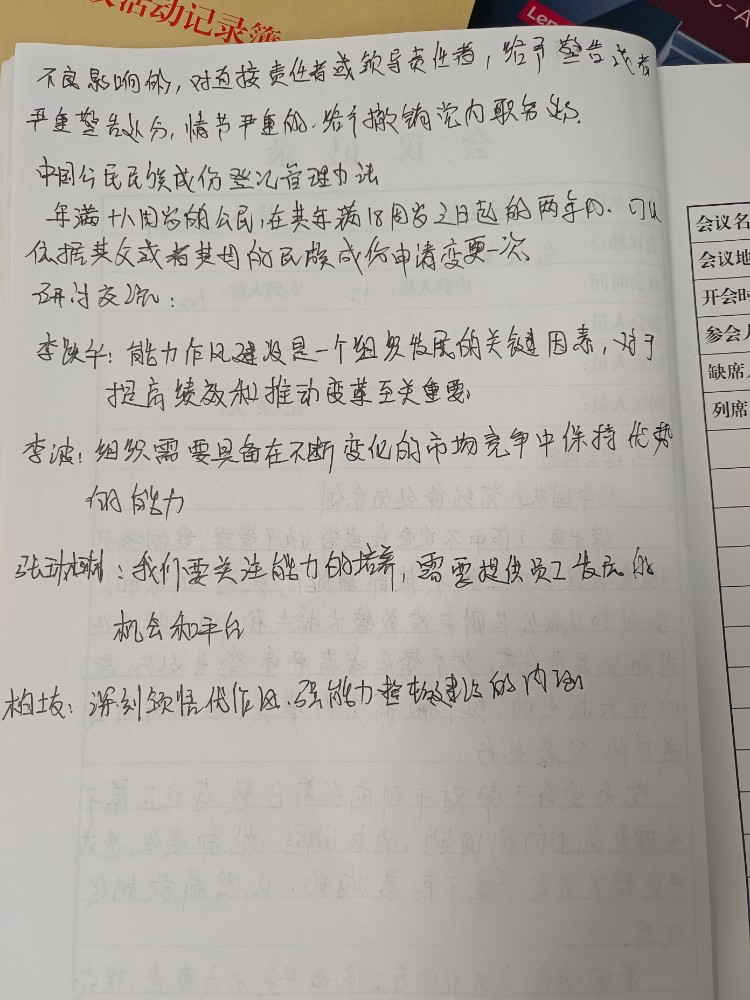 活动记录簿
Len
C-A
不良影响的，对直接责任者或领导责任者，给予警告或者
严重警告处分，情节严重的，给予撤销党内职务处分.
中国公民民族成份登记管理办法
年满十八周岁的公民，在其年满18周岁之日起的两年内，可以
依据其父或者其母的民族成份申请变更一次
研讨交流：
李跃华：能力作风建设是一个组织发展的关键因素，对于
提高绩效和推动变革至关重要
李波：组织需要具备在不断变化的市场竞争中保持优势
的能力
张琳：我们要关注能力的培养，需要提供员工发展的
机会和平台
柏：深刻领悟优作风、强能力整板建设的内涵
会议名
会议地
开会时
参会人
缺席人
列席